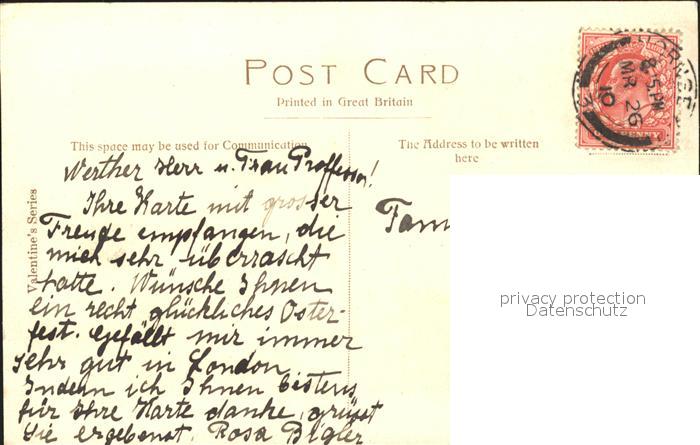 POST CARD
Printed in Great Britain
This space may be used for Communication
The Address to be written
here
Valentine's Series
HORNSEY
8.15 PM
MR 26
10
PENNY
Werther Herr u. Frau Proffessor!
Ihre Karte mit grosser
Freude empfangen, die
mich sehr überrascht
hatte. Wünsche Ihnen
ein recht glückliches Oster-
fest. Gefällt mir immer
sehr gut in London
Indem ich Ihnen bestens
für Ihre Karte danke, grüsst
Sie ergebenst. Rosa Bigler
Fam
privacy protection
Datenschutz